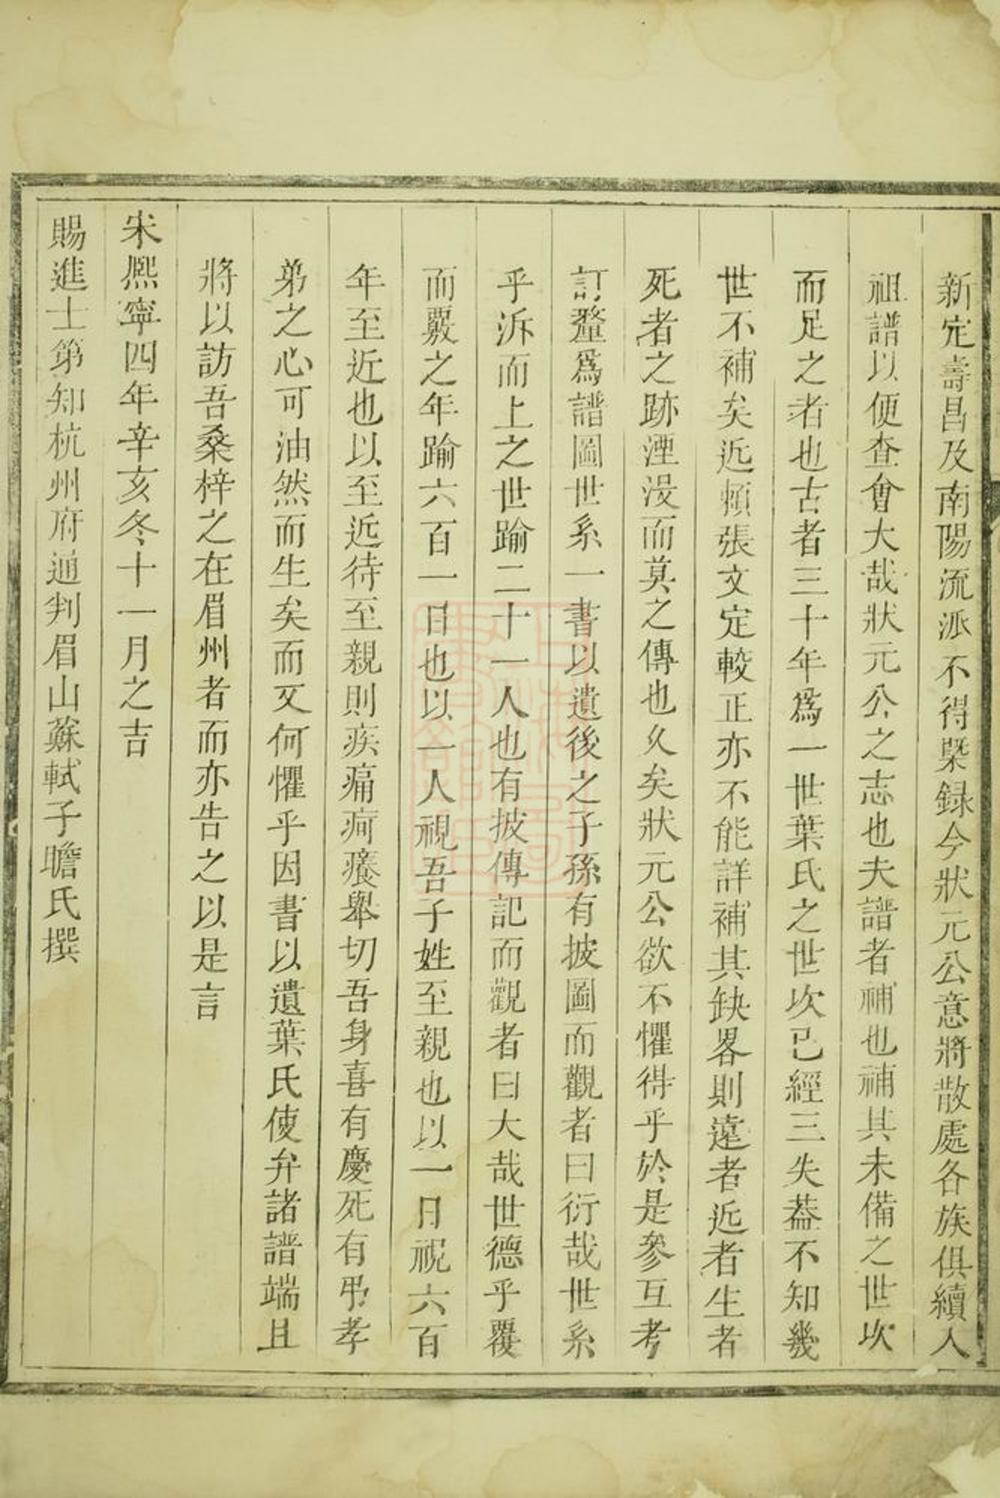 新定壽昌及南陽流派不得槩録今狀元公意將散處各族俱續入
祖譜以便查會大哉狀元公之志也夫譜者補也補其未備之世次
而足之者也古者三十年爲一世葉氏之世次已經三失葢不知幾
世不補矣近頼張文定較正亦不能詳補其缺畧則遠者近者生者
死者之跡湮没而莫之傳也久矣狀元公欲不懼得乎於是參互考
訂釐爲譜圖世系一書以遺後之子孫有披圖而觀者曰衍哉世系
乎泝而上之世踰二十一人也有披傳記而觀者曰大哉世德乎覆
而覈之年踰六百一日也以一人視吾子姓至親也以一日視六百
年至近也以至近待至親則疾痛疴癢舉切吾身喜有慶死有弔孝
弟之心可油然而生矣而又何懼乎因書以遺葉氏使弁諸譜端且
將以訪吾桑梓之在眉州者而亦告之以是言
宋熈寧四年辛亥冬十一月之吉
賜進士第知杭州府通判眉山蘇軾子瞻氏撰